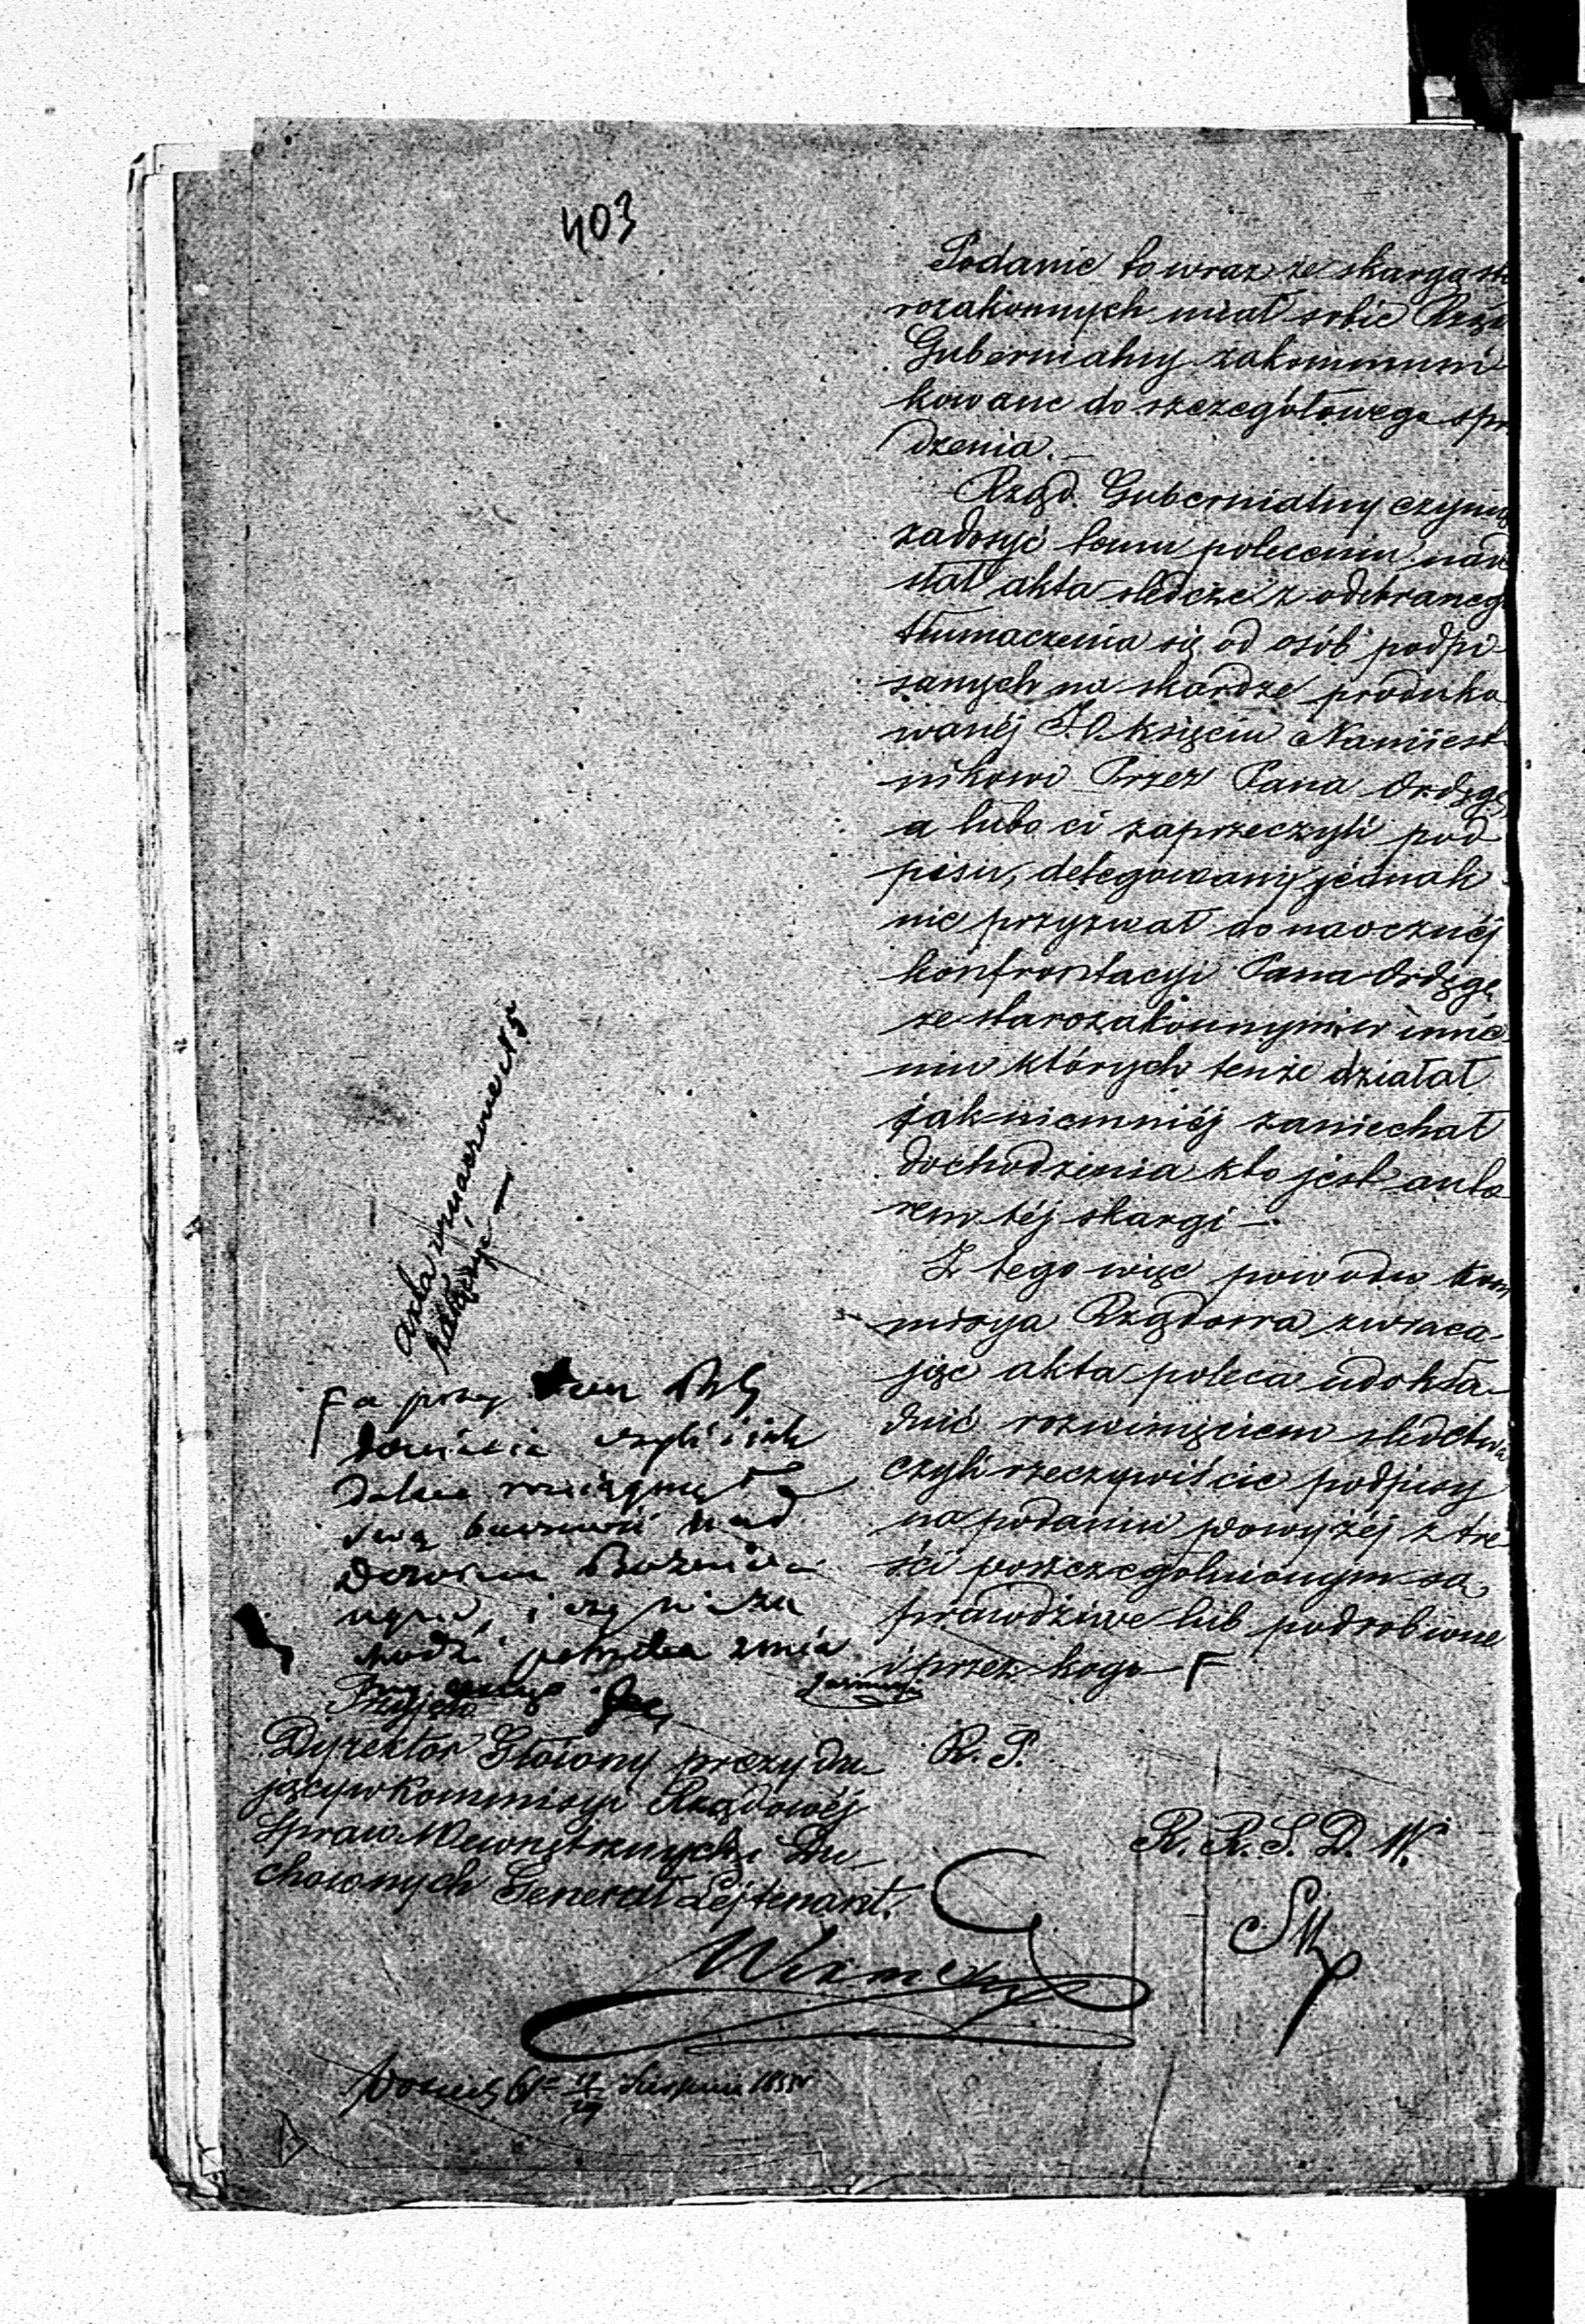 403
Podanie to wraz ze skargą sta
rozakonnych miał sobie Rząd
Gubernialny zakommuni
kowane do szczegółowego spr
dzenia. —
Rząd Gubernialny czyniąc
zadosyć temu poleceniu nade
słał akta śledcze z odebranego
tłumaczenia się od osób podpi-
sanych na skardze produko
wanéj J.O. księciu Namiest-
nikowi Przez Pana Ordęgę,
a lubo ci zaprzeczyli pod
pisu, delegowany jednak
nie przyzwał do naocznéj
konfrontacyi Pana Ordęgę
ze starozakonnymi w imie
niu których tenże działał
jak niemniéj zaniechał
dochodzenia kto jest auto
rem téj skargi —
Z tego więc powodu Kom
missya Rządowa zwraca
jąc akta poleca udokła-
dnić rozwinięciem śledztwa
czyli rzeczywiście podpisy
na podaniu powyżéj z tre
ści poszczególnionym są
prawdziwe lub podrobione
i przez kogo — F
akta wyznaczone
załączyć —
F a przy tem
czyli i jak
daleko rozciągnął
swą nad
i czy nie za
chodzi potrzeba
Przyjęto
Dyrektor Główny prezydu
jący w Kommissyi Rządowéj
Spraw Wewnętrznych i Du-
chownych Generał Lejtenant.
R. P.
R. R. S. D. W.
17/29 Sierpnia